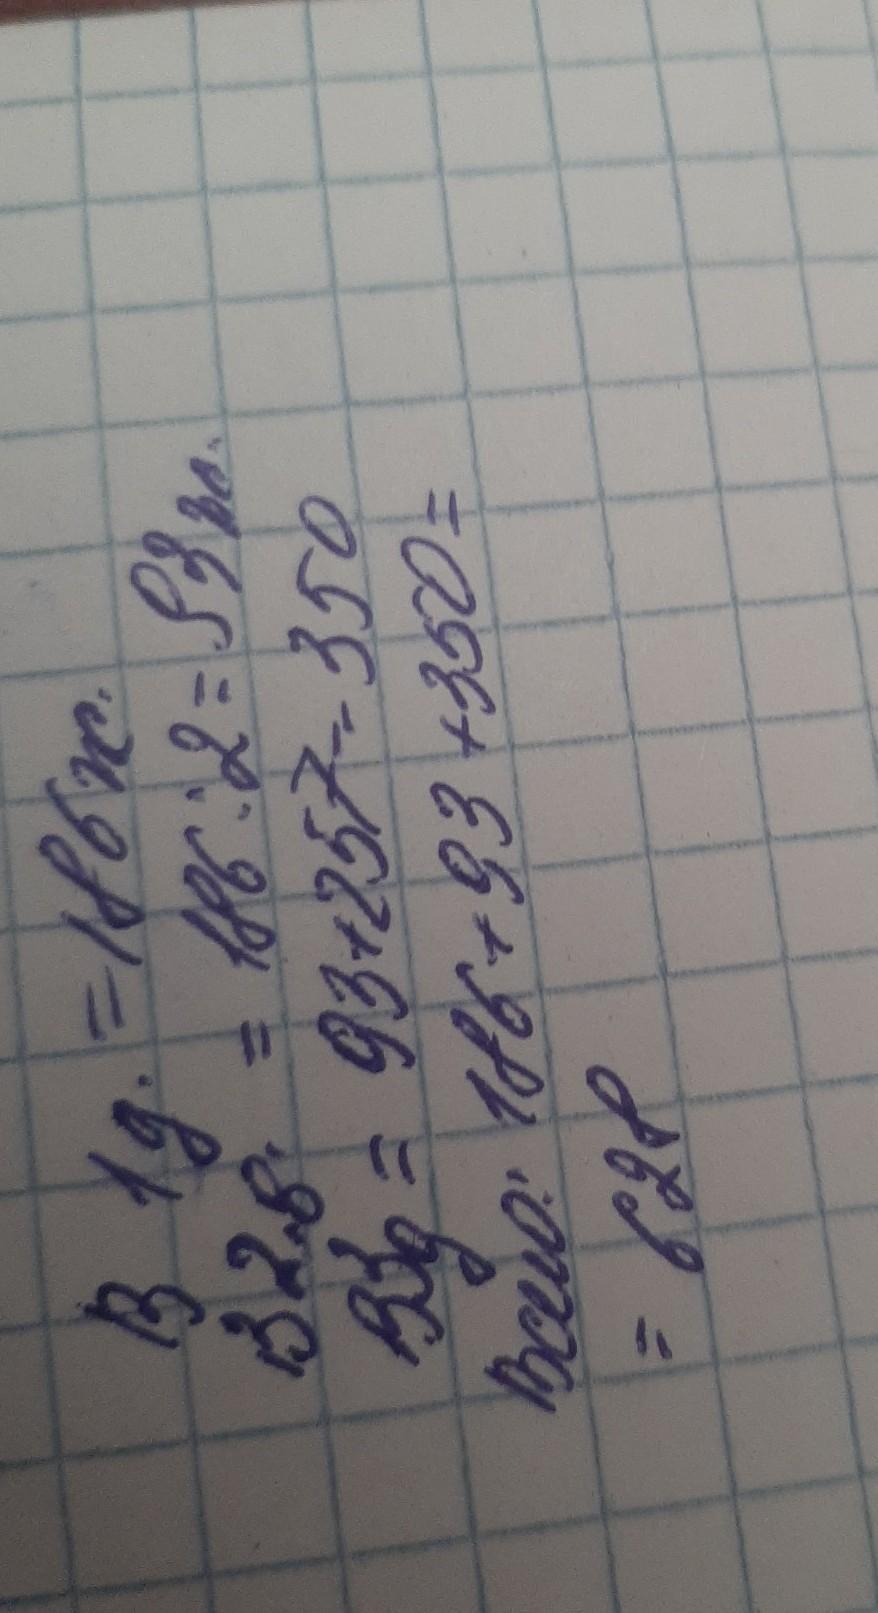 В 1д. = 186 ж.
В 2д. = 186:2=93 ж.
В3д = 93+257=350
Всего: 186+93+350=
= 628